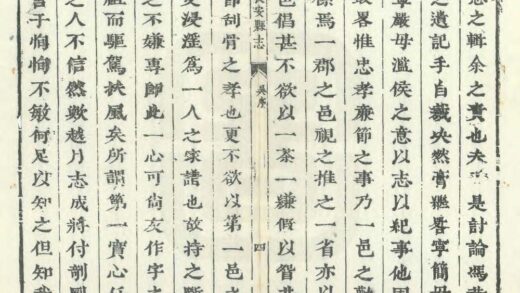 志之輯余之責也夫是討論馮
之遺記手自裁決然膏畧寧簡毋
嚴毋濫侯之意以志以紀事他因
畧惟忠孝廉節之事乃一邑之
焉一郡之邑視之推之一省亦以
也倡甚不欲以一茶一縑假以
安縣志 吳序 四
刮骨之孝也更不欲以第一邑之
浸淫爲一人之家譜也故持之
之不嫌專卽此一心可尚友作字之
而驅駕扶風矣所謂第一實心
之人不信然歟越月志成將付剞
子恂恂不敏何足以知之但知我